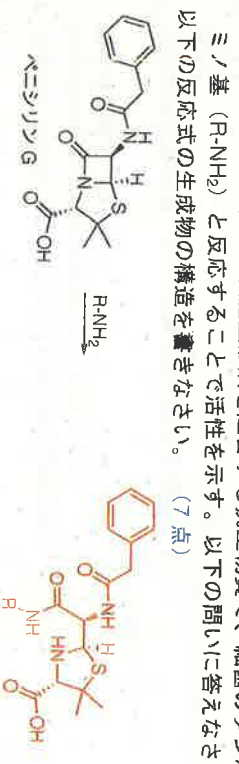 ミノ基（R-NH₂）と反応することで活性を示す。以下の問いに答えなさ
以下の反応式の生成物の構造を書きなさい。（7 点）
O
NH
H
S
O
N
O
OH
ペニシリン G
R-NH₂
O
NH
H
S
O
HN
NH
R
O
OH